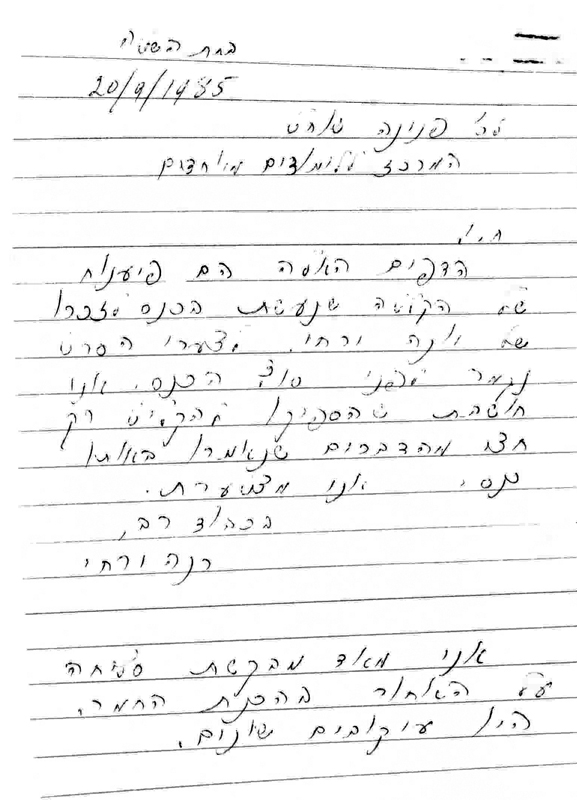 20/9/1985
גב' פנינה
המרכז ללימודים מיוחדים
הדפים האלה הם פיענוח
של הקלטה שנעשת בכנס לזכרו
של ורחי. לצערי הסרט
נגמר לפני סוף הכנס. אני
חושבת שהספיקו להקליט רק
חצי מהדברים שנאמרו באותו
כנס. אני מצטערת.
בכבוד רב,
רנה ורחי
אני מאוד מבקשת סליחה
על האחור בהכנת החמר.
היו עיכובים שונים.